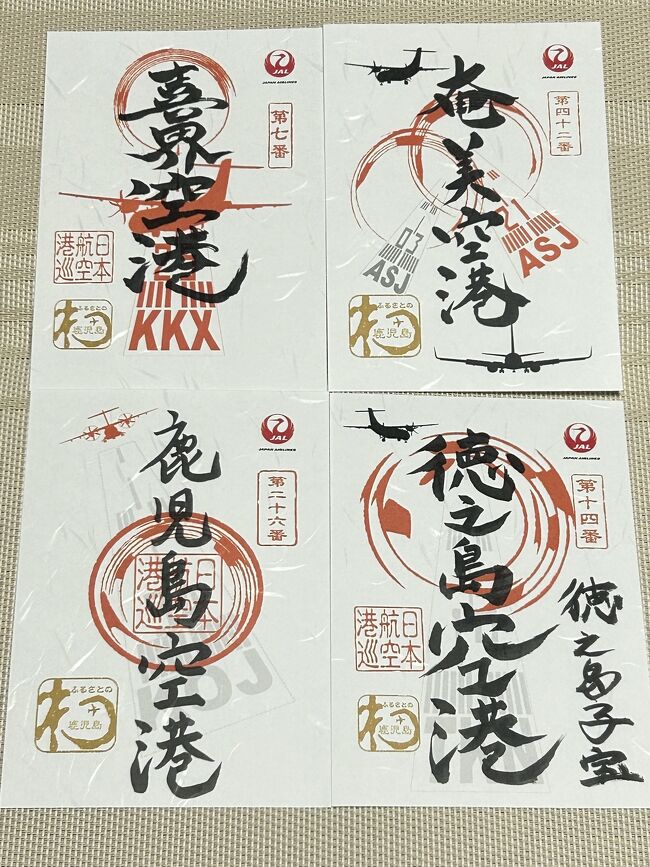 喜界空港
JAL
JAPAN AIRLINES
第七番
日本
航空
港巡
ふるさとの
鹿児島
KKX
奄美空港
JAL
JAPAN AIRLINES
第四十二番
03
ASJ
21
ASJ
ふるさとの
鹿児島
鹿児島空港
JAL
JAPAN AIRLINES
第二十六番
日本
航空
港巡
ふるさとの
鹿児島
徳之島空港
JAL
JAPAN AIRLINES
第十四番
徳之島子宝
日本
航空
港巡
ふるさとの
鹿児島